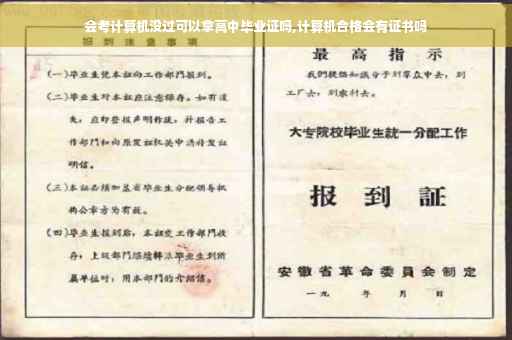 会考计算机没过可以拿高中毕业证吗,计算机合格会有证书吗
报到注意事项
(一)毕业生凭本证向工作部门报到。
(二)毕业生对本证应注意保存。如有遗
失，应即登报声明作废，并报告工
作部门和向原发证机关申请补发证
明信。
(三)本证必须加盖省毕业生分配领导机
构公章方为有效。
(四)毕业生报到后，本证交工作部门收
存；上级部门继续转派毕业生到所
属单位时，用本部门的介绍信。
最高指示
我们提倡知识分子到群众中去，到
工厂去，到农村去。
大专院校毕业生统一分配工作
报到证
安徽省革命委员会制定
一九 年 月 日